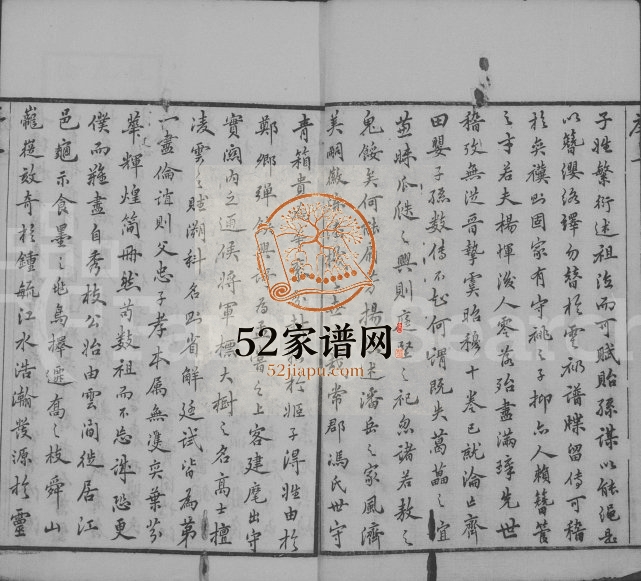 子姓繁衍述祖治而可賦貽孫謀以能繩是
以簪纓洛繹勿替於雲礽譜牒留傳可稽
於奕禩此固家有守祧之子抑亦人賴簪管
之才若夫楊惲後人零落殆盡滿璋先世
稽攷無從晉摯虞貽穆十卷已就淪亡齊
田嬰子孫數傳不知何謂既失葛藟之宜
蓋昧瓜瓞之興則 之祀忽諸若敖之
鬼餒矣何 揚 述潘岳之家風濟
美嗣徽 常郡馮氏世守
青箱貴 於姬子得姓由於
鄭鄉彈鋏興 為 之上客建麾出守
實閥內之通侯將軍標大樹之名高士擅
凌雲之賦溯科名則省解廷試皆為第
一盡倫誼則父忠子孝本屬無雙奕葉芬
華輝煌簡冊然苟數祖而不忘誠恐更
僕而難盡自秀枝公始由雲間徙居江
邑 示食墨之兆鳥擇遷喬之枝舜山
巃嵷效奇於鍾毓江水浩瀚發源於靈
52家谱网
52jiapu.com